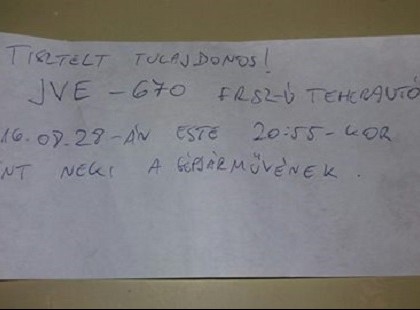 TISZTELT TULAJDONOS!
JVE - 670 FRSZ-Ú TEHERAUTÓ
16.08.28-ÁN ESTE 20:55-KOR
NT NEKI A GÉPJÁRMŰVÉNEK.